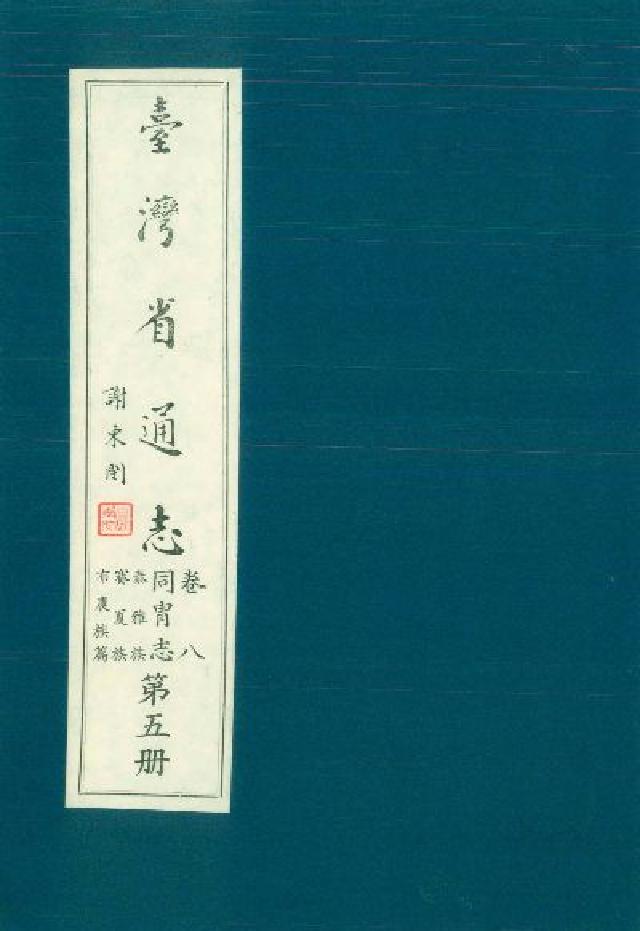 臺灣省通志
卷八
同冑志
泰雅族
賽夏族
布農族篇
第五册
謝東閔